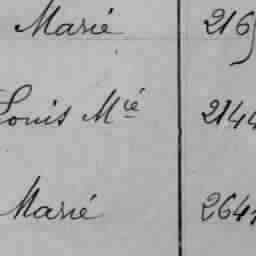 Marié 2165
Louis Mié 2144
Marié 2641